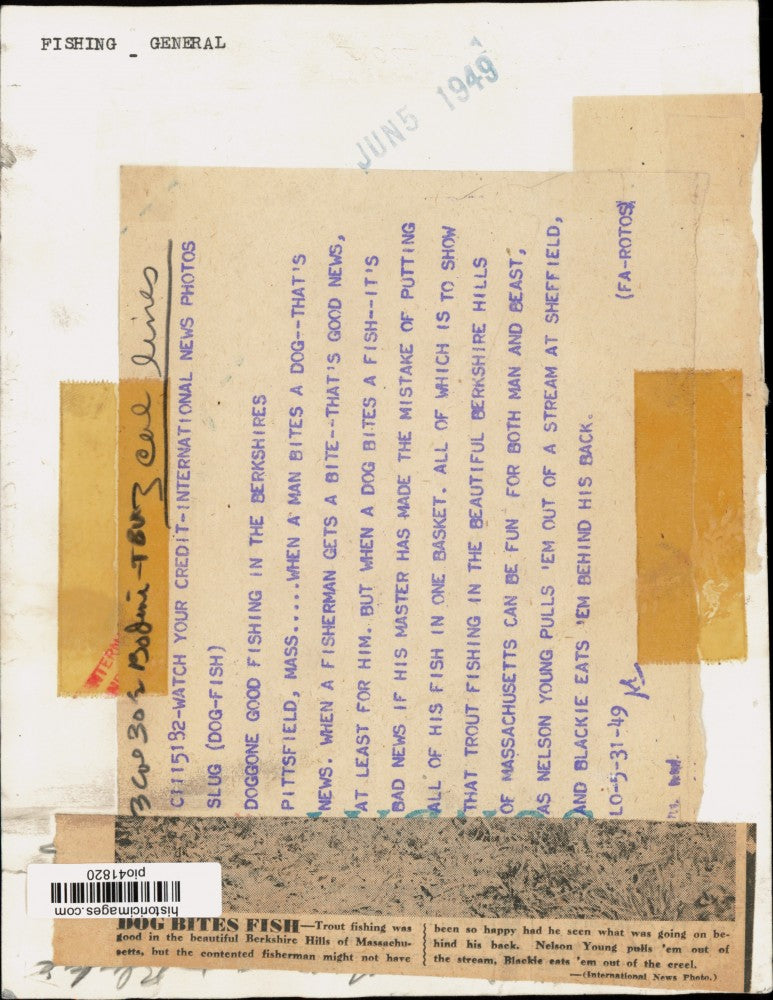 FISHING - GENERAL
JUN 5 1949
3 Col 30 & Bodoni - T Bur 3 cut lines
C1115182-WATCH YOUR CREDIT-INTERNATIONAL NEWS PHOTOS
SLUG (DOG-FISH)
DOGGONE GOOD FISHING IN THE BERKSHIRES
PITTSFIELD, MASS.....WHEN A MAN BITES A DOG--THAT'S
NEWS. WHEN A FISHERMAN GETS A BITE--THAT'S GOOD NEWS,
AT LEAST FOR HIM. BUT WHEN A DOG BITES A FISH--IT'S
BAD NEWS IF HIS MASTER HAS MADE THE MISTAKE OF PUTTING
ALL OF HIS FISH IN ONE BASKET. ALL OF WHICH IS TO SHOW
THAT TROUT FISHING IN THE BEAUTIFUL BERKSHIRE HILLS
OF MASSACHUSETTS CAN BE FUN FOR BOTH MAN AND BEAST,
AS NELSON YOUNG PULLS 'EM OUT OF A STREAM AT SHEFFIELD,
AND BLACKIE EATS 'EM BEHIND HIS BACK.
LO-5-31-49 (FA-ROTOS)
historicimages.com
pio41820
DOG BITES FISH—Trout fishing was
good in the beautiful Berkshire Hills of Massachu-
setts, but the contented fisherman might not have
been so happy had he seen what was going on be-
hind his back. Nelson Young pulls 'em out of
the stream, Blackie eats 'em out of the creel.
—(International News Photo.)